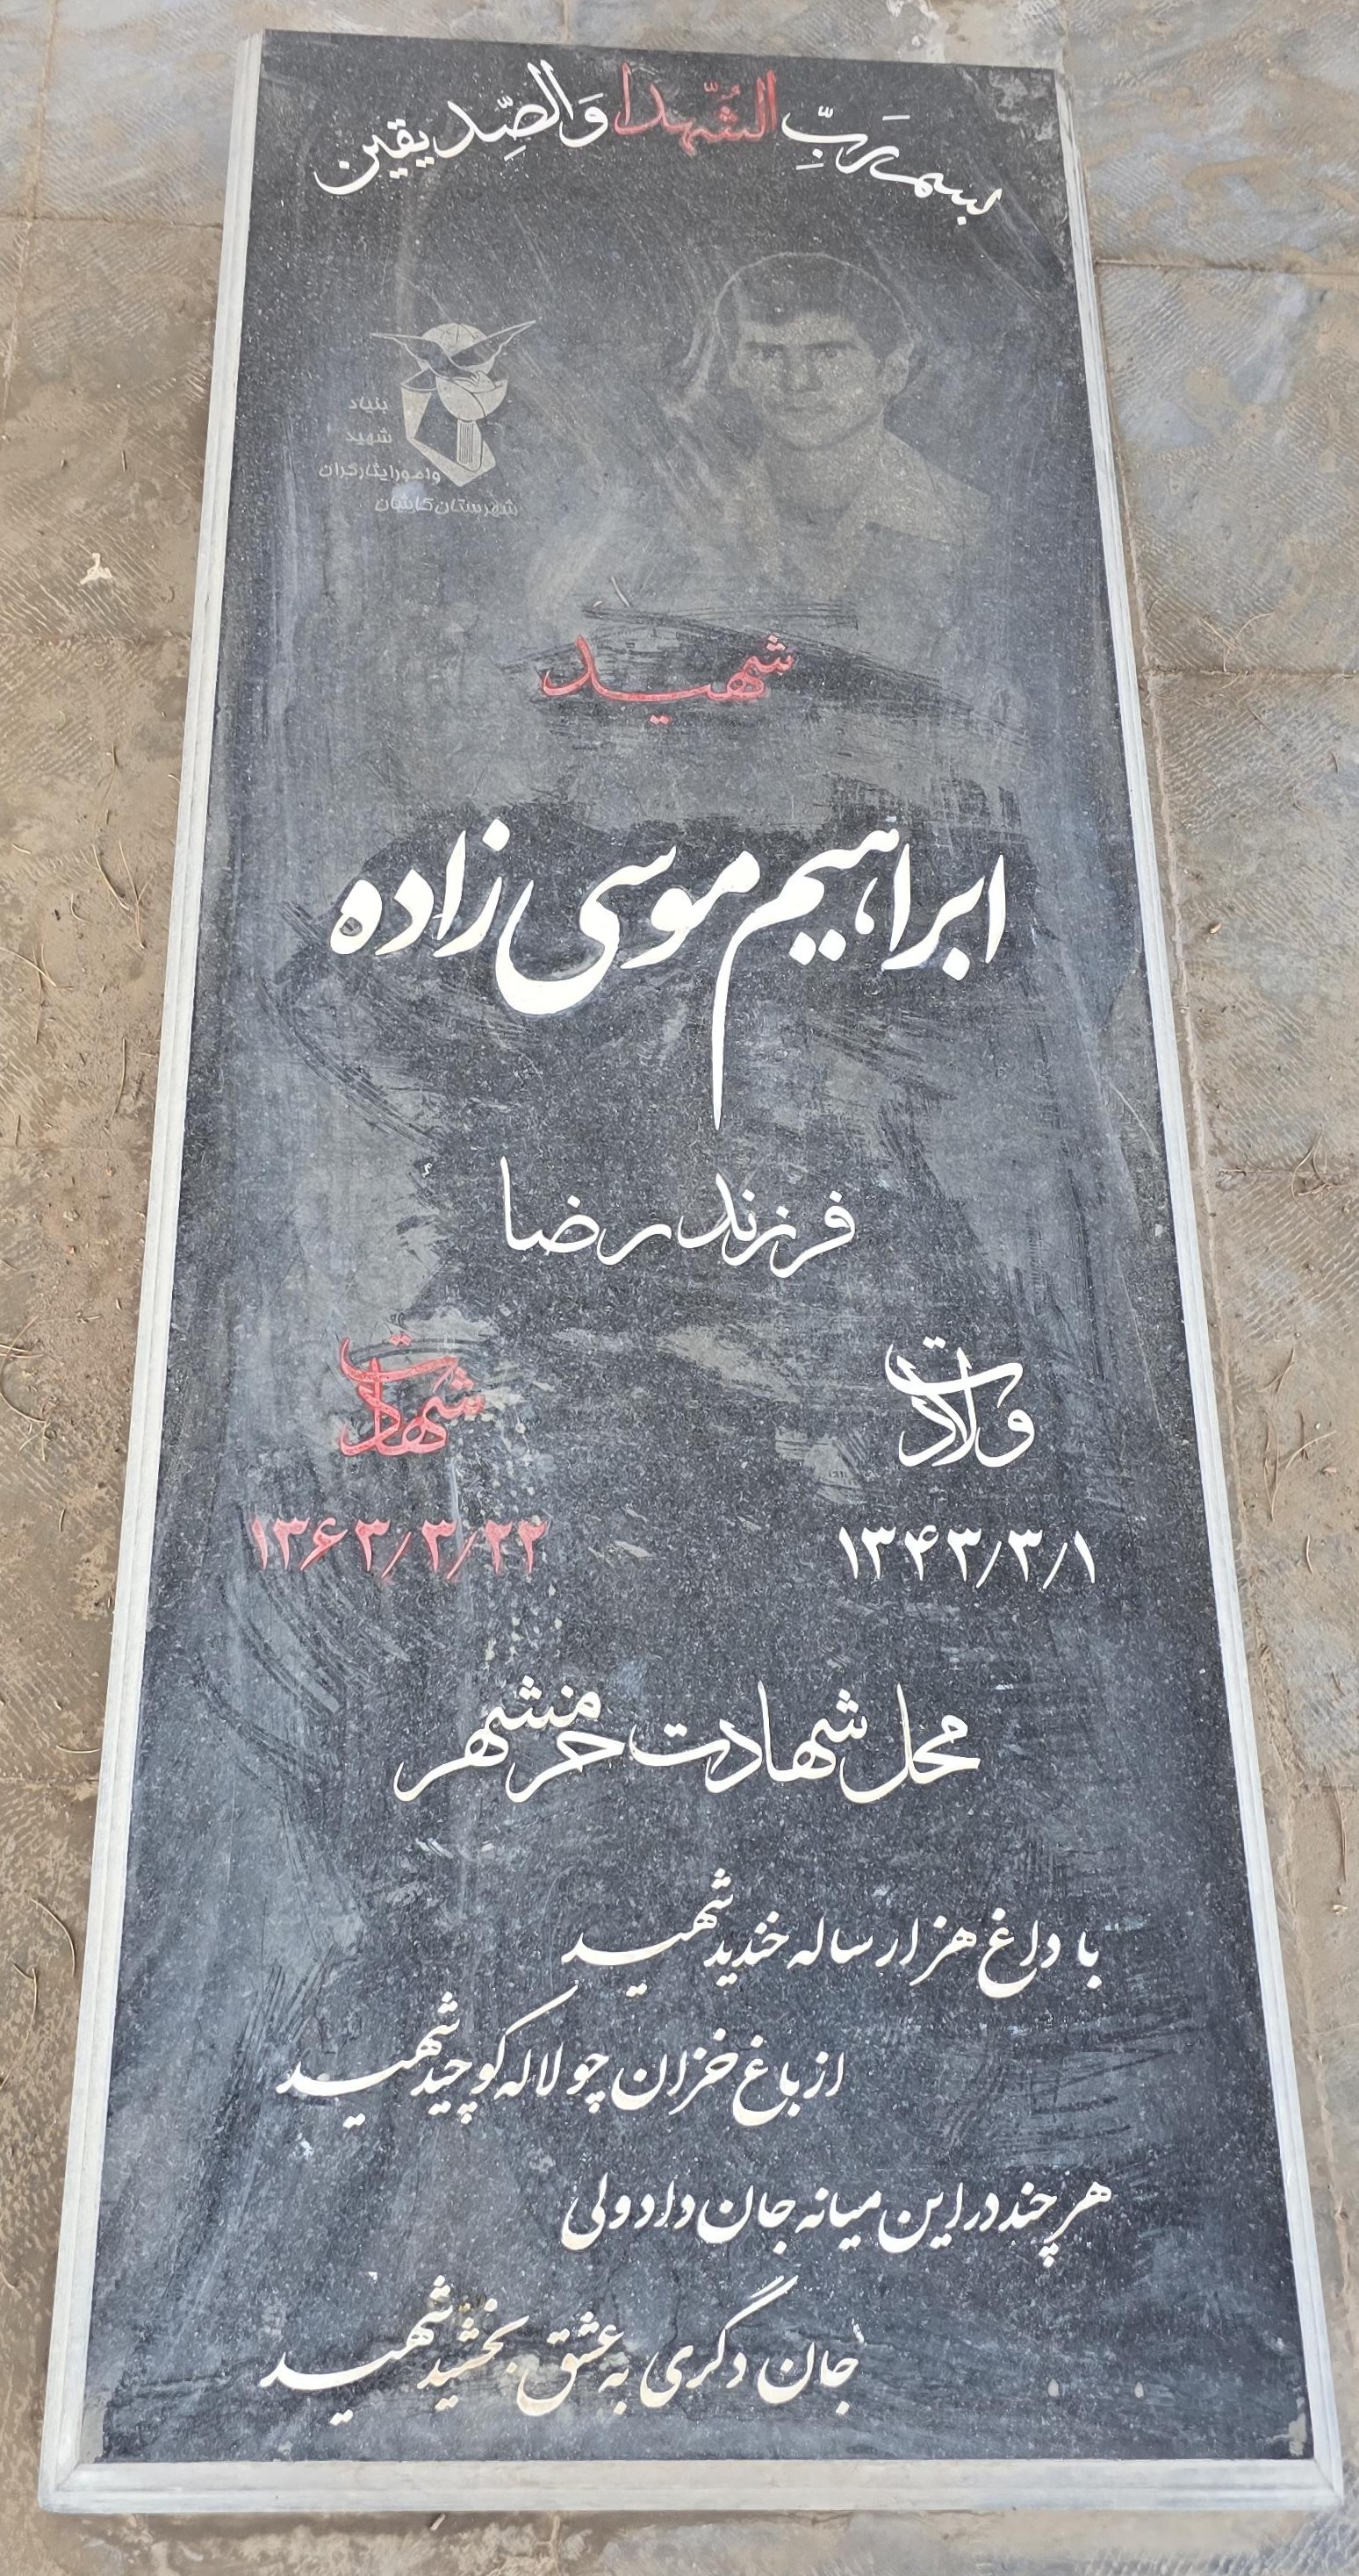 بسم رَبِّ الشُّهدا وَالصِّدیقین
بنیاد
شهید
وامورایثارگران
شهرستان کاشان
شهید
ابراهیم موسی زاده
فرزند رضا
ولادت
شهادت
۱۳۴۳/۳/۱
۱۳۶۳/۳/۲۲
محل شهادت خرمشهر
با داغ هزار ساله خندید شهید
از باغ خزان چو لاله کوچید شهید
هر چند در این میانه جان داد ولی
جان دگری به عشق بخشید شهید